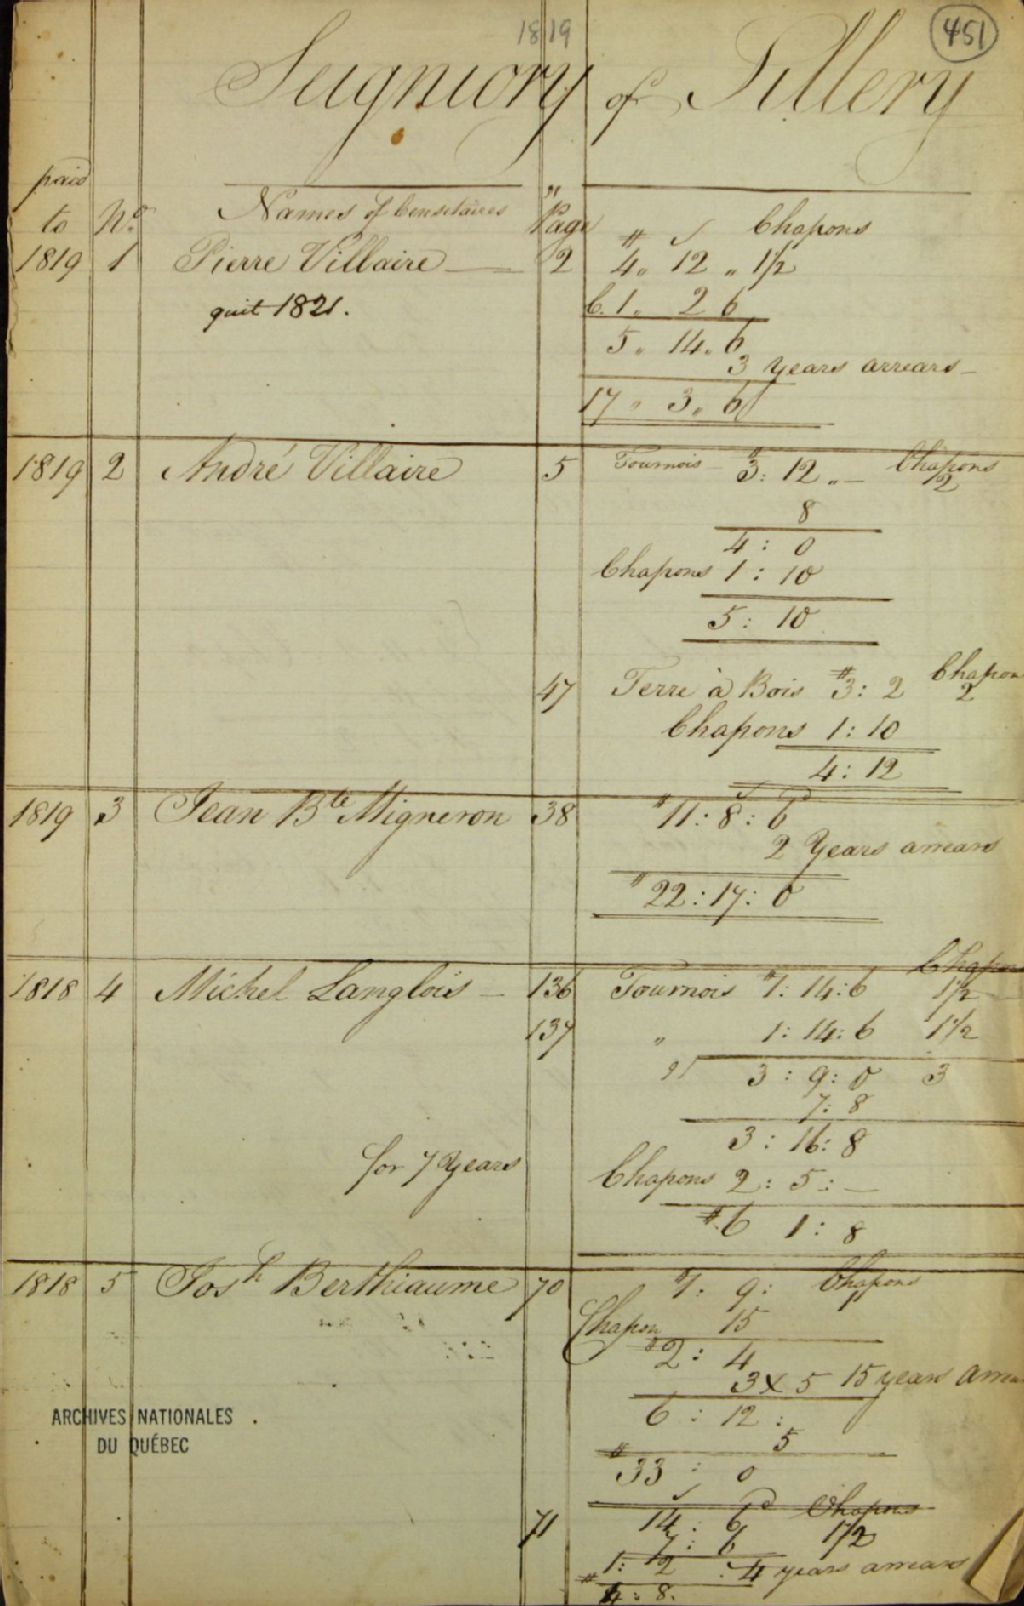 1819
451
Seigniory of Sillery
paid
to No. Names of Censitaires Page # Chapons
1819 1 Pierre Villaire 2 4 " 12 " 1/2
quit 1821. C. 1 " 2 6
5 " 14 " 6
3 years arrears
17 " 3 " 6
1819 2 André Villaire 5 Tournois # 3 : 12 " — Chapons 2
8
4 : 0
Chapons 1 : 10
5 : 10
47 Terre à Bois # 3 : 2 Chapon 2
Chapons 1 : 10
4 : 12
1819 3 Jean Bte Migneron 38 # 11 : 8 : 6
2 Years arrears
# 22 : 17 : 0
1818 4 Michel Langlois — 136 Tournois # 1 : 14 : 6 Chapon 1/2
137 " 1 : 14 : 6 1 1/2
3 : 9 : 0 3
7 : 8
3 : 16 : 8
for 7 Years Chapons 2 : 5 : —
# 6 1 : 8
1818 5 Josh Berthiaume 70 # 1 . 9 : Chapons 1
Chapon 15
# 2 : 4
3 x 5 15 years
6 : 12 :
5
# 33 : 0
71 14 : 6 Chapons 1/2
7 : 6
1 : 2 : 4 years arrears
# 4 : 8 .
ARCHIVES NATIONALES
DU QUÉBEC